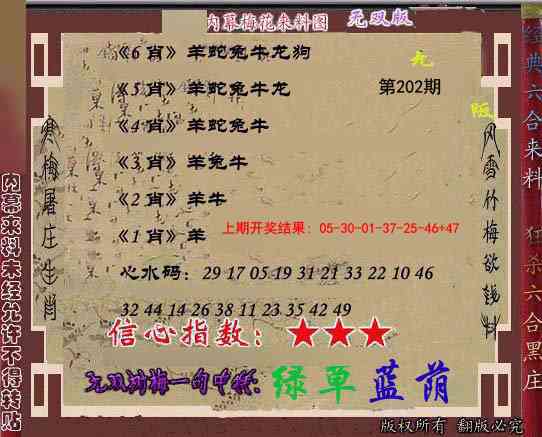 内幕梅花来料图 无双版
《6肖》羊蛇兔牛龙狗
九
《5肖》羊蛇兔牛龙 第202期
版
《4肖》羊蛇兔牛
《3肖》羊兔牛
《2肖》羊牛
《1肖》羊
上期开奖结果：05-30-01-37-25-46+47
心水码：29 17 05 19 31 21 33 22 10 46
32 44 14 26 38 11 23 35 42 49
信心指数：★★★
绿草蓝荫
寒梅屠庄生肖
风雪竹梅欲钱料
内幕来料未经允许不得转贴
经典六合来料 狂杀六合黑庄
版权所有 翻版必究